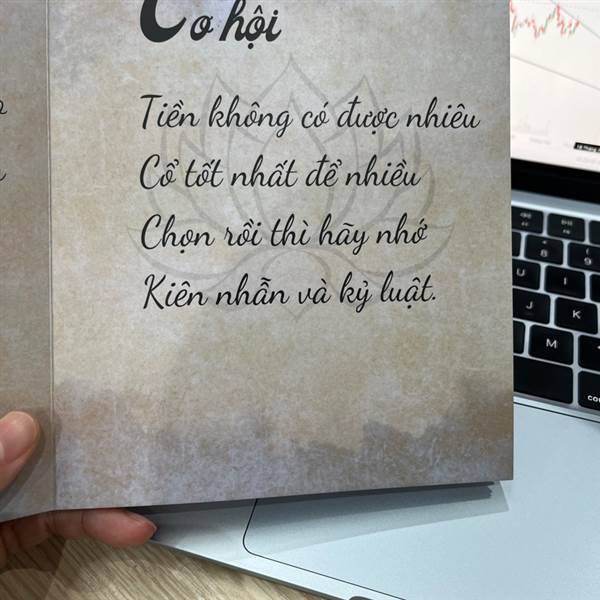 Cơ hội
Tiền không có được nhiêu
Cổ tốt nhất để nhiều
Chọn rồi thì hãy nhớ
Kiên nhẫn và kỷ luật.
8
9
U
I
J
K
M